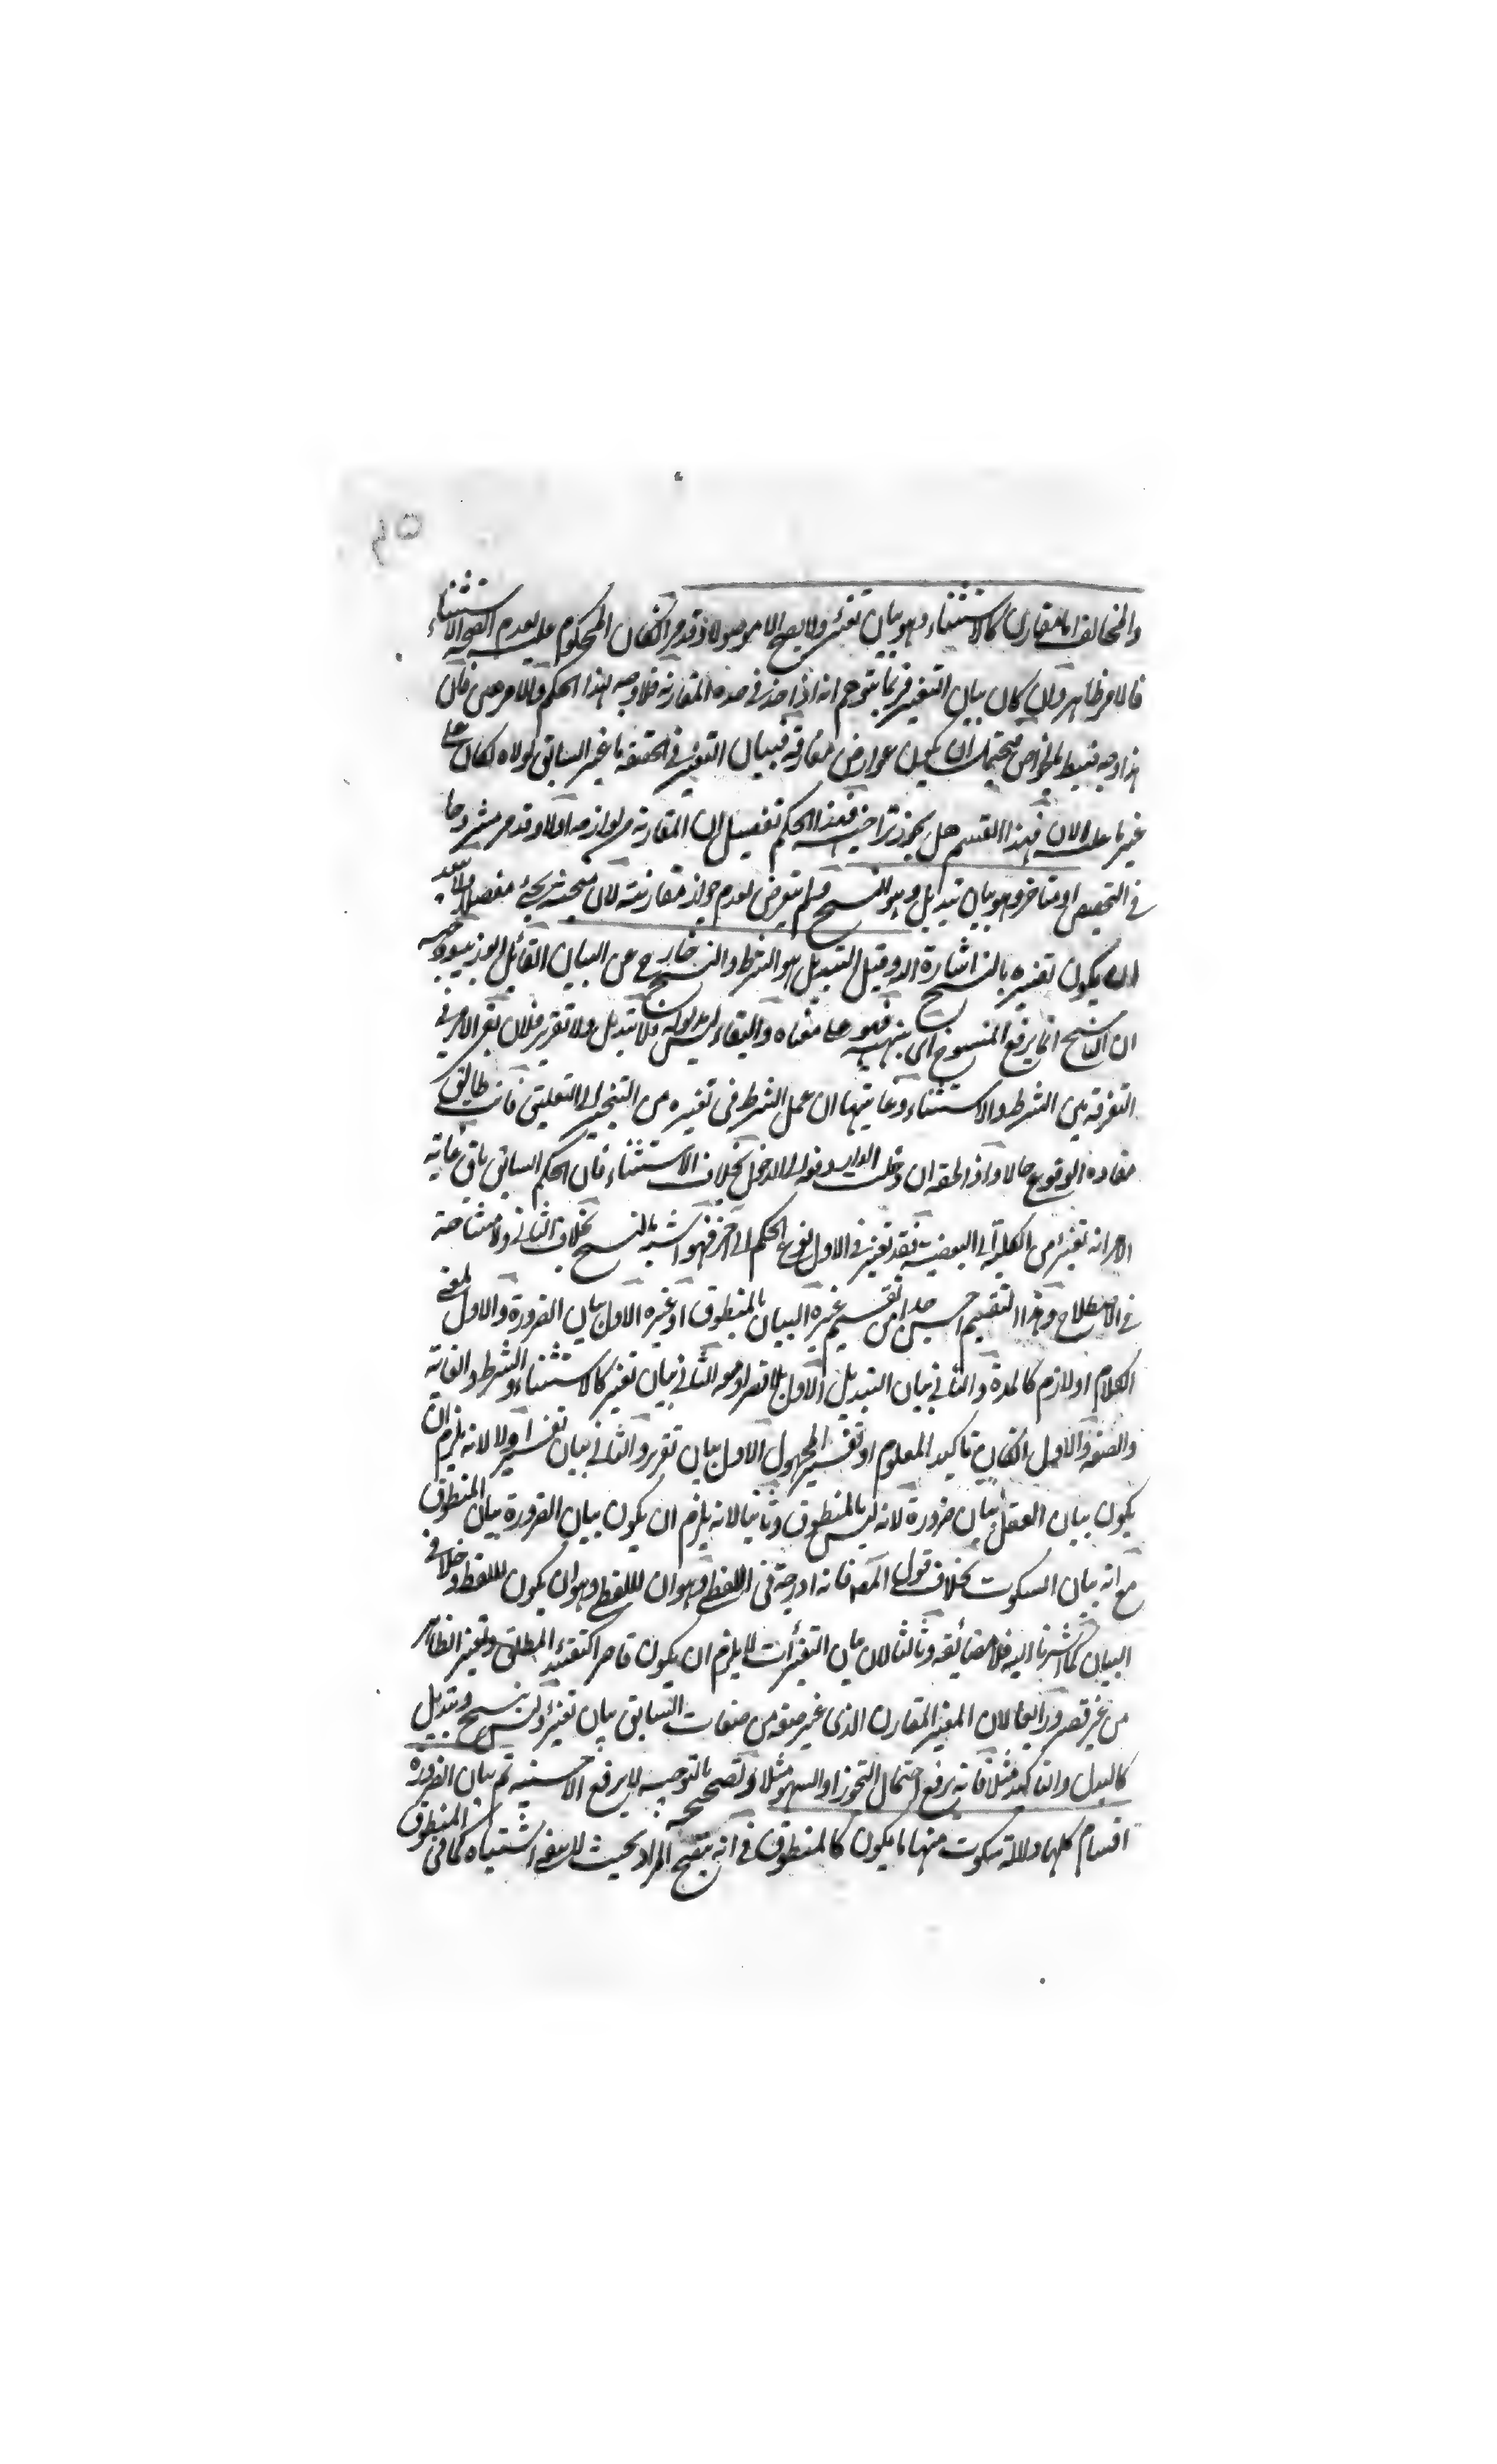 والمخالف اما مقارن كالاستثناء وهو بيان تغيير ولا يصح الا موصولا وقد مر ان كان المحكوم عليه بعدم الصحة الاستثناء
فالامر ظاهر وان كان بيان التغيير فربما يتوهم انه اذا اخذ في حده المقارنة فلا وجه لهذا الحكم والامر هين فان
هذا وجه ضبط بالخواص فيحتمل ان يكون عوارض مفارقة فبيان التغيير في الحقيقة ما غير السابق لولاه لكان على
غير ما عليه الان فهذا القسم هل يجوز تراخيه فهذا الحكم تفصيل ان المقارنة من لوازمه اولا وقد مر مشروحا
في التخصيص او متاخر وهو بيان تبديل وهو النسخ ولم يتعرض لعدم جواز مقارنته لان مبحثه يجئ مفصلا ولا يبعد
ان يكون تفسيره بالنسخ اشارة اليه وقيل التبديل هو الشرط والنسخ خارج عن البيان القائل ابو زيد ووجهه
ان الناسخ انما يرفع المنسوخ اي ينهيه فهو مفناه والبقاء ليس مدلوله ولا تبديل ولا تقرير فلان بقي الامر في
التفرقة بين الشرط والاستثناء وغايتها ان عمل الشرط في تغييره من التنجيز الى التعليق فانت طالق
مفاده الوقوع حالا واذا لحقه ان دخلت الدار دفعه الى الدخول بخلاف الاستثناء فان الحكم السابق باق غاية
الامر انه تغيير من الكلية الى البعضية فقد تغير في الاول نوع الحكم الى آخر فهو اشبه بالنسخ بخلاف الثاني ولا مشاحة
في الاصطلاح وهذا التقسيم احسن جدا من تقسيم غيره البيان بالمنطوق او غيره الاول بيان الضرورة والاول لمعنى
الكلام او لازم كالمدة والثاني بيان التبديل الاول بلا تغير او معه الثاني بيان تغيير كالاستثناء والشرط والغاية
والصفة والاول ان كان تاكيد المعلوم او تفسير المجهول الاول بيان تقرير والثاني بيان تفسير اولا لانه يلزم ان
يكون بيان العقل بيان ضرورة لانه ليس بالمنطوق وثانيا لانه يلزم ان يكون بيان الضرورة بيان المنطوق
مع انه بيان السكوت بخلاف قول المص فانه ادرجه في اللفظي وهو ان اللفظي وهو ان يكون للفظ دخلا في
البيان كما اشرنا اليه فلا مضائقة وثالثا لان بيان التغييرات لا يلزم ان يكون قاصرا كتقييد المطلق وتغيير الظاهر
من غير قصر ورابعا لان المغير المقارن الذي غير صفة من صفات السابق بيان تغيير وليس بنسخ وتبديل
كالبدل والتاكيد مثلا فانه يرفع احتمال التجوز او السهو مثلا وتصحيحه بالتوجيه لا يرفع الاحسنية ثم بيان الضرورة
اقسام كلها دلالة سكوت منها ما يكون كالمنطوق في انه يتضح المراد بحيث لا يبقى اشتباه كما في المنطوق